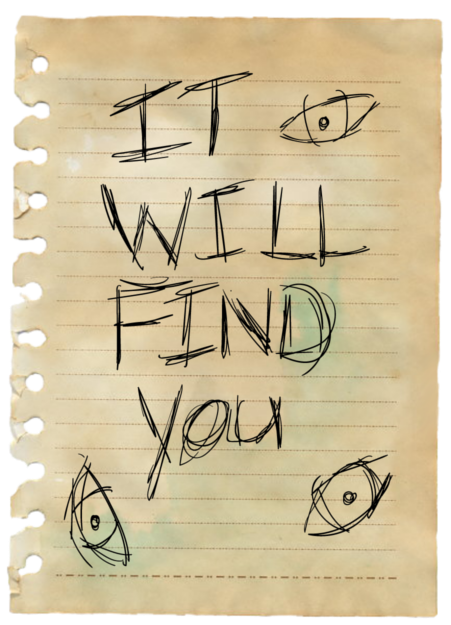 IT
WILL
FIND
YOU